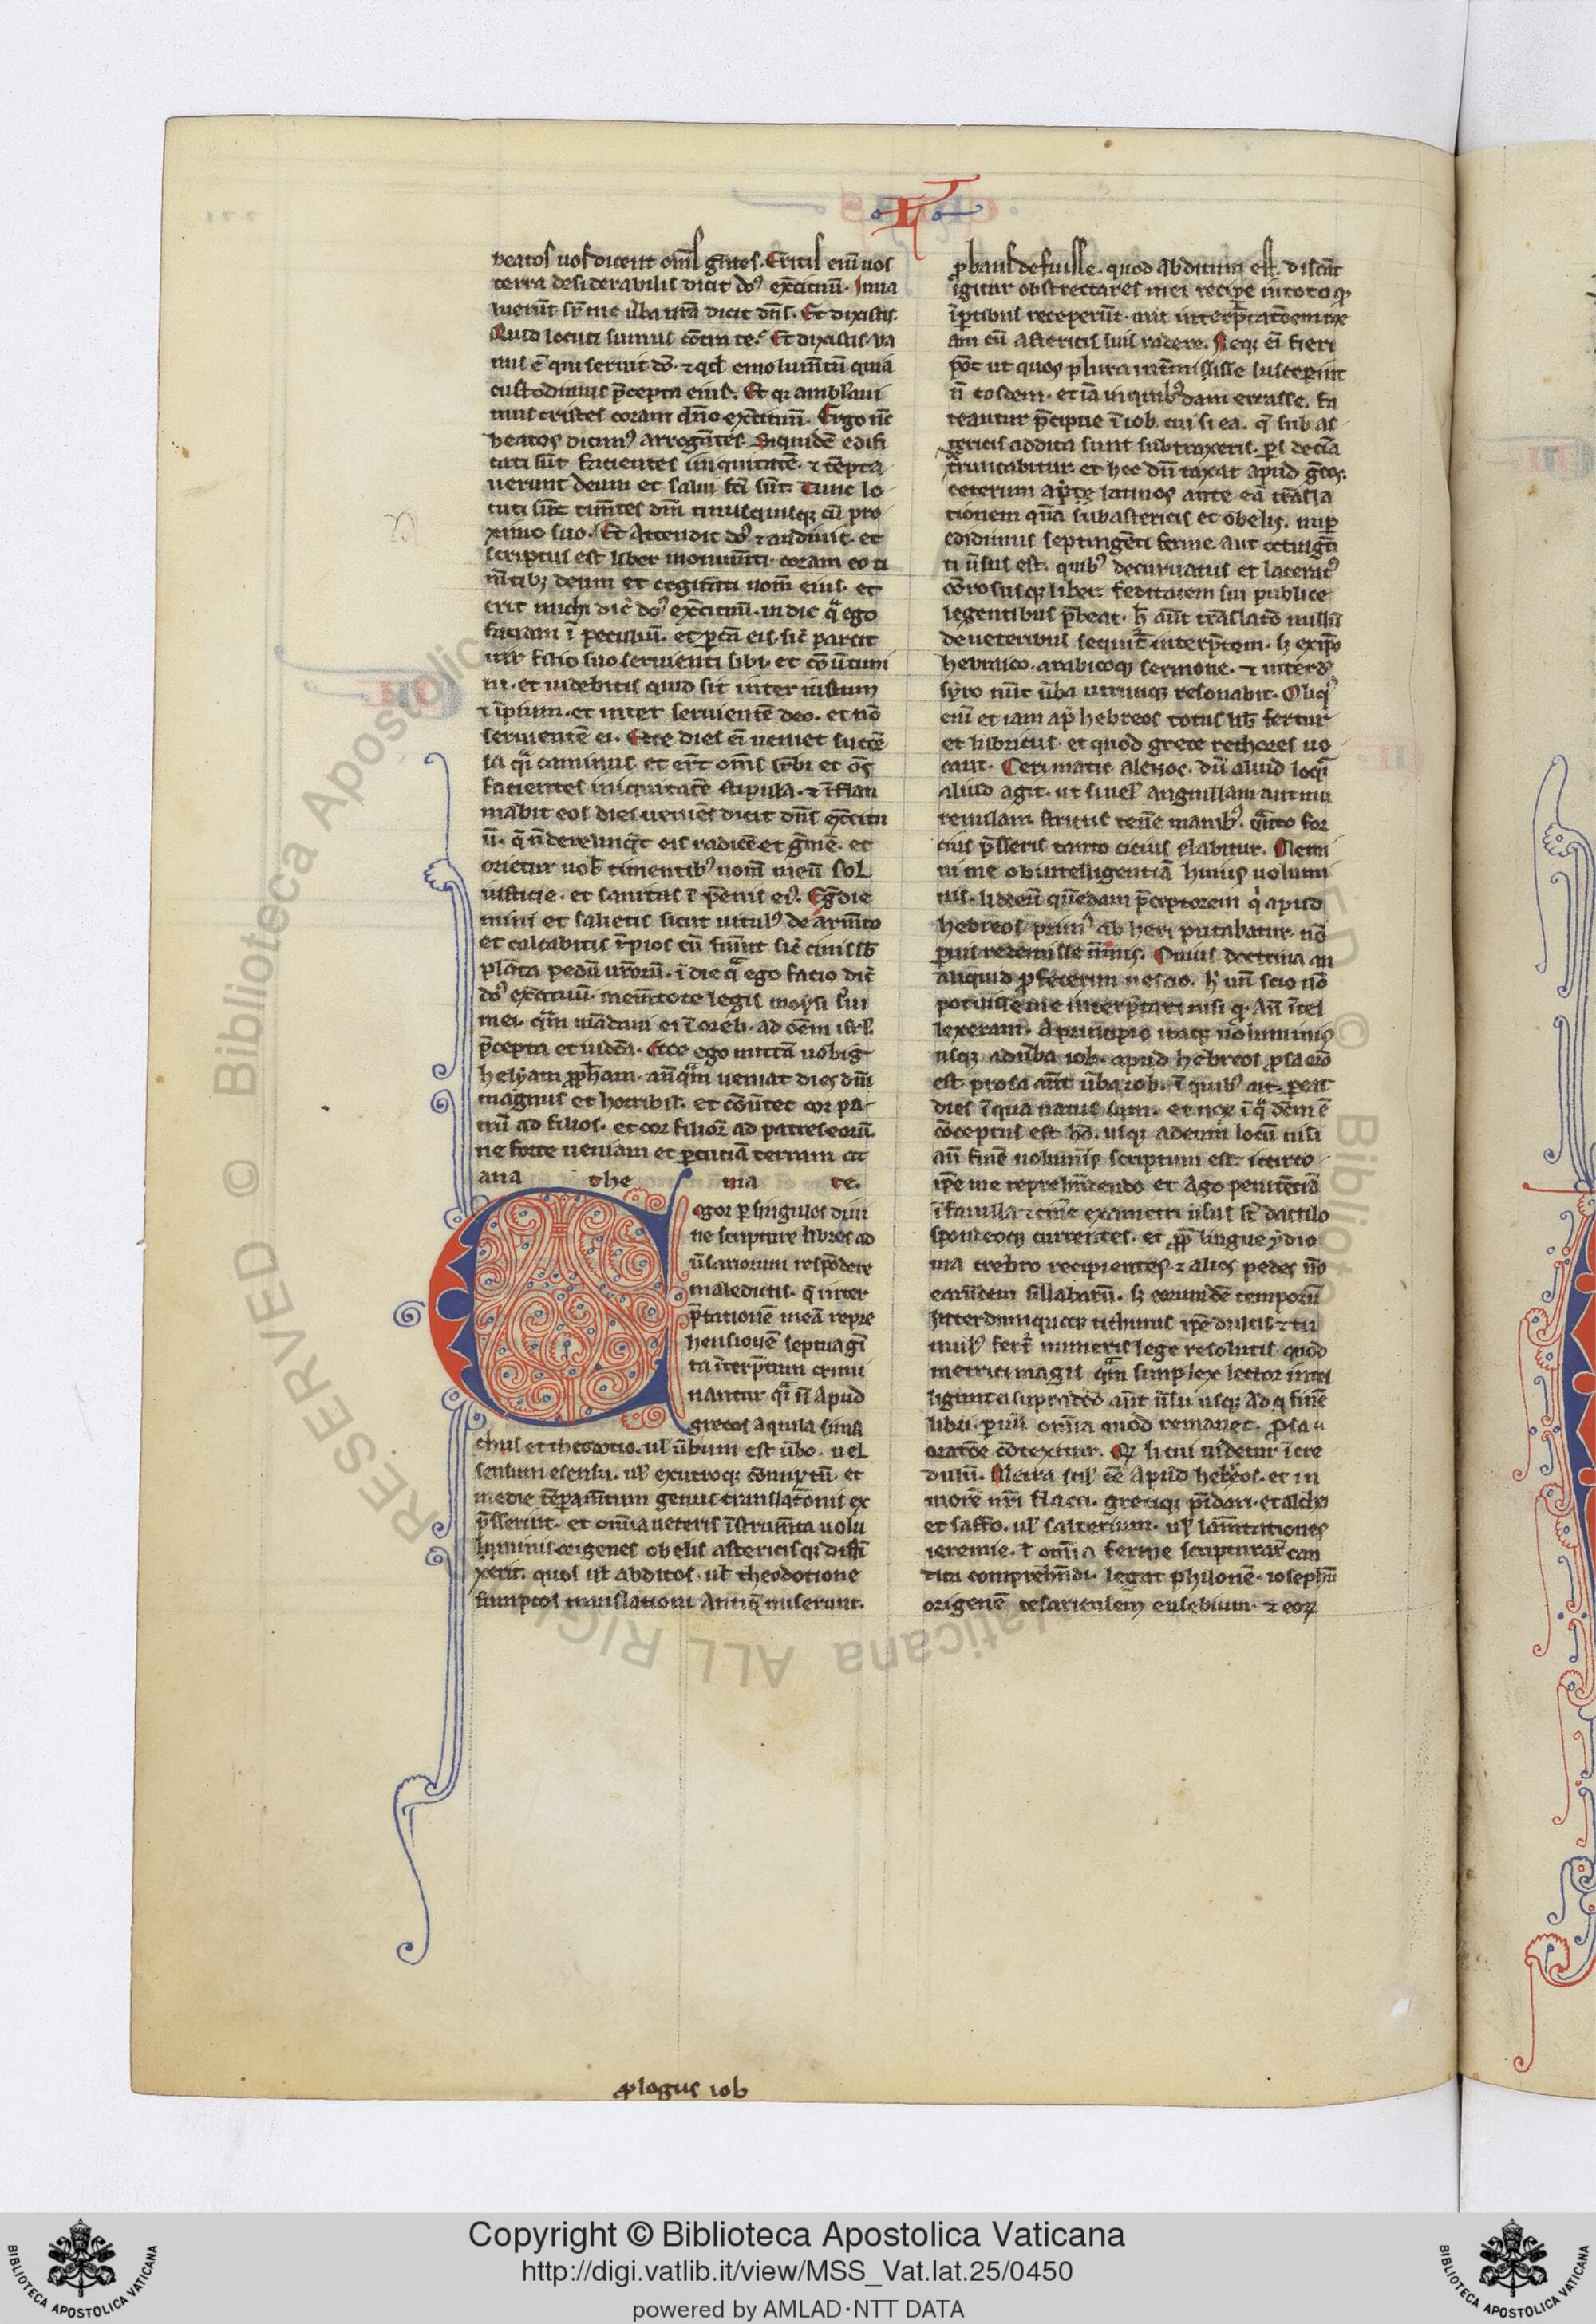 beatos uos dicent om̅s ge̅tes. Eritis eni̅ uos
terra desiderabilis dicit do᷒ exe̅rcituu̅. Inua
luerūt sr̅ me u̅ba ur̅a dicit dn̅s. Et dixistis.
Quid locuti sumus co̅tra te. Et dixistis. va
nus e̅ qui seruit do̅. ⁊ qd̅ emolum̅tu̅ quia
custodiuimus p̅cepta eius. Et qr ambl̅aui
mus tristes coram dn̅o exe̅rcituu̅. Ergo nc̅
beatos dicim᷒ arroga̅tes. Siquide̅ edifi
cati su̅t facientes iniquitate̅. ⁊ te̅pta
uerunt deum et salui fc̅i su̅t. Tunc lo
cuti su̅t time̅tes dm̅ unusquisq; cu̅ pro
ximo suo. Et attendit do᷒ ⁊ audiuit. et
scriptus est liber monum̅ti coram eo ti
me̅tib; deum et cogita̅ti nom̅ eius. et
erit michi dic̅ do᷒ exe̅rcituu̅. in die qᵃ ego
faciam i̅ peculiu̅. et pca̅ eis. sic̅ parcit
uir filio suo seruienti sibi. et co̅u̅timi
ni. et uidebitis quid sit inter iustum
⁊ i̅pium. et inter seruiente̅ deo. et no̅
seruiente̅ ei. Ecce dies ei̅ ueniet succe̅
sa qᵃi caminus. et eru̅t om̅s sr̅bi et oe̅s
facientes iniquitate̅ stipula. ⁊ i̅flam
mabit eos dies uenie̅s dicit dn̅s exe̅rcitu
u̅. q̅ n̅ derelinq̅t eis radice̅ et g̅me̅. et
orietur uob̅ timentib᷒ nom̅ meu̅ sol
iusticie. et sanitas i̅ pe̅nis ei᷒. Eg̅die
mini et salietis sicut uitul᷒ de arm̅to
et calcabitis i̅pios cu̅ fueri̅t sic̅ cinis sb̅
pla̅ta pedu̅ ur̅oru̅. i̅ die qᵃ ego facio dic̅
do᷒ exe̅rcituu̅. mem̅tote legis moysi s̅ui
mei. qᵃm ma̅daui ei i̅ oreb. ad oe̅m isr̅l.
p̅cepta et iudicia. Ecce ego mitta̅ uobis
helyam pp̅ham. an̅qᵃm ueniat dies dn̅i
magnus et horribil̅. et co̅u̅tet cor pa
tru̅ ad filios. et cor filior̅ ad patres eoru̅.
ne forte ueniam et p̱cutia̅ terram a
ana the ma te.
Cogor p̱ singulos diui
ne scripture libros ad
u̅sariorum respo̅dere
maledictis. q̅ inter
p̅tatione̅ mea̅ repre
hensione̅ septuagi̅
ta i̅terp̅tum crimi
nantur qᵃi n̅ apud
grecos aquila sima
chus et theodotio. ul̅ u̅bum est u̅bo. uel
sensum e sensu. ul̅ ex utroq; co̅mixtu̅ et
medie te̅peram̅tum genus translatio̅nis ex
p̅sserint. et omnia ueteris i̅strum̅ta uolu
luminis origenes obelis astericisq; disti̅
xerit. quos ul̅ abditos. ul̅ theodotione
sumptos translationi antiq̅ inserunt.
ꝓbans defuisse. quod abditum est. discāt
igitur obstrectatores mei recipe̅ in toto qͦ
i̅ptibus receperu̅t. aut interp̅tatoe̅m me
am cu̅ astericis suis radere. Neq; ei̅ fieri
po̅t ut quos plura int̅misisse susceperint
n̅ eosdem. et ia̅ in quib᷒dam errasse. fa
teantur p̅cipue i̅ iob. cui si ea. q̅ sub as
tericis addita sunt subtraxeris. ps̱ decta
truncabitur. et hec du̅taxat apud g̅cos.
ceterum ap̅ latinos ante ea̅ tra̅sla
tionem qua̅ sub astericis et obelis. nup̱
edidimus septinge̅ti ferme. aut octinge̅
ti u̅sus est. quib᷒ decuruatus et lacerat᷒
co̅rosusq; liber. feditatem sui publice
legentibus p̅beat. h̅ aut̅ tra̅slato̅ nullu̅
de ueteribus sequit̅ interp̅tem. s; ex ip̅o
hebraico. arabicoq; sermone. ⁊ interdu̅
syro nu̅c u̅ba utruq; resonabit. Obliq᷒
eni̅ et iam ap̅ hebreos totus lib̅ fertur
et lubricus. et quod grece rethores uo
cant. du̅ aliud loq̅
aliud agit. ut si uel̅ anguillam aut mu
renulam strictis tene̅ manib᷒. qᵃnto for
cius p̅sseris tanto citius elabitur. Memi
ni me ob intelligentia̅ huius uolumi
nis. lideu̅ que̅dam p̅ceptorem qͥ apud
hebreos primͦ haberi putabatur. no̅
paruis redemisse nu̅mis. Cuius doctrina an
aliquid ꝓfecerim nescio. h̅ unu̅ scio no̅
potuisse me interp̅tari nisi qͦ an̅ i̅tel
lexeram. A principio itaq; uoluminis
usq; ad u̅ba iob. apud hebreos ꝓsa ero̅
est. prosa aut̅ u̅ba iob. i̅ quib᷒ ait. p̱eat
dies i̅ qua natus sum. et nox i̅ qᵃ dc̅m e̅
co̅ceptus est ho̅. usq; ad eum locu̅ nisi
an̅ fine̅ uolumi̅s scriptum est. icirco
ip̅e me reprehe̅ndo et ago penite̅tia̅
i̅ fauilla ⁊ cin̅e exametri u̅sus st̅ dactilo
spondeoq; currentes. et ꝓp̅ lingue ydio
ma crebro recipientes ⁊ alios pedes no̅
earu̅dem sillabaru̅. s; eorumde̅ temporu̅
Interdumquoq; rithmus ip̅e dulcis ⁊ ti
nulus̅ fert̅ numeris lege resolutis. quod
metrici magis qᵃm simplex lector intel
ligunt a supradco̅ aut̅ u̅su usq; ad fine̅
libri. paru̅ om̅ia quod remanet. ꝓsa
orato̅e co̅texitur. Q; si cui uidetur i̅cre
dulu̅. Metra scil̅ ee̅ apud hebreos. et in
more̅ nr̅i flacci. greciq; pi̅dari. et alchei
et saffo. ul̅ salterium. ul̅ lame̅ntationes
ieremie. ul̅ om̅ia ferme scripturar̅ can
tica comprehe̅ndi. legat philone̅. iosephu̅
origene̅ cesariensem eusebium. ⁊ eor̅
ꝓlogus iob
RESERVED © Biblioteca Apostolica Vaticana ALL RIGHTS
Copyright © Biblioteca Apostolica Vaticana
http://digi.vatlib.it/view/MSS_Vat.lat.25/0450
powered by AMLAD·NTT DATA
BIBLIOTECA APOSTOLICA VATICANA
BIBLIOTECA APOSTOLICA VATICANA